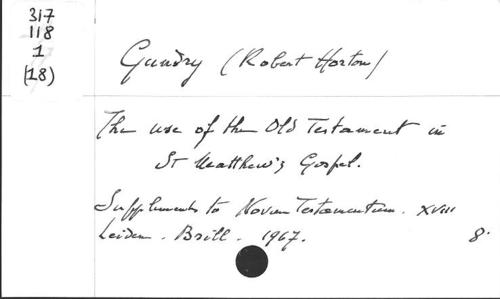 317
118
1
(18)
Gundry (Robert Horton)
The use of the Old Testament in
St Matthew's Gospel.
Supplements to Novum Testamentum. XVIII
Leiden. Brill. 1967. 8.